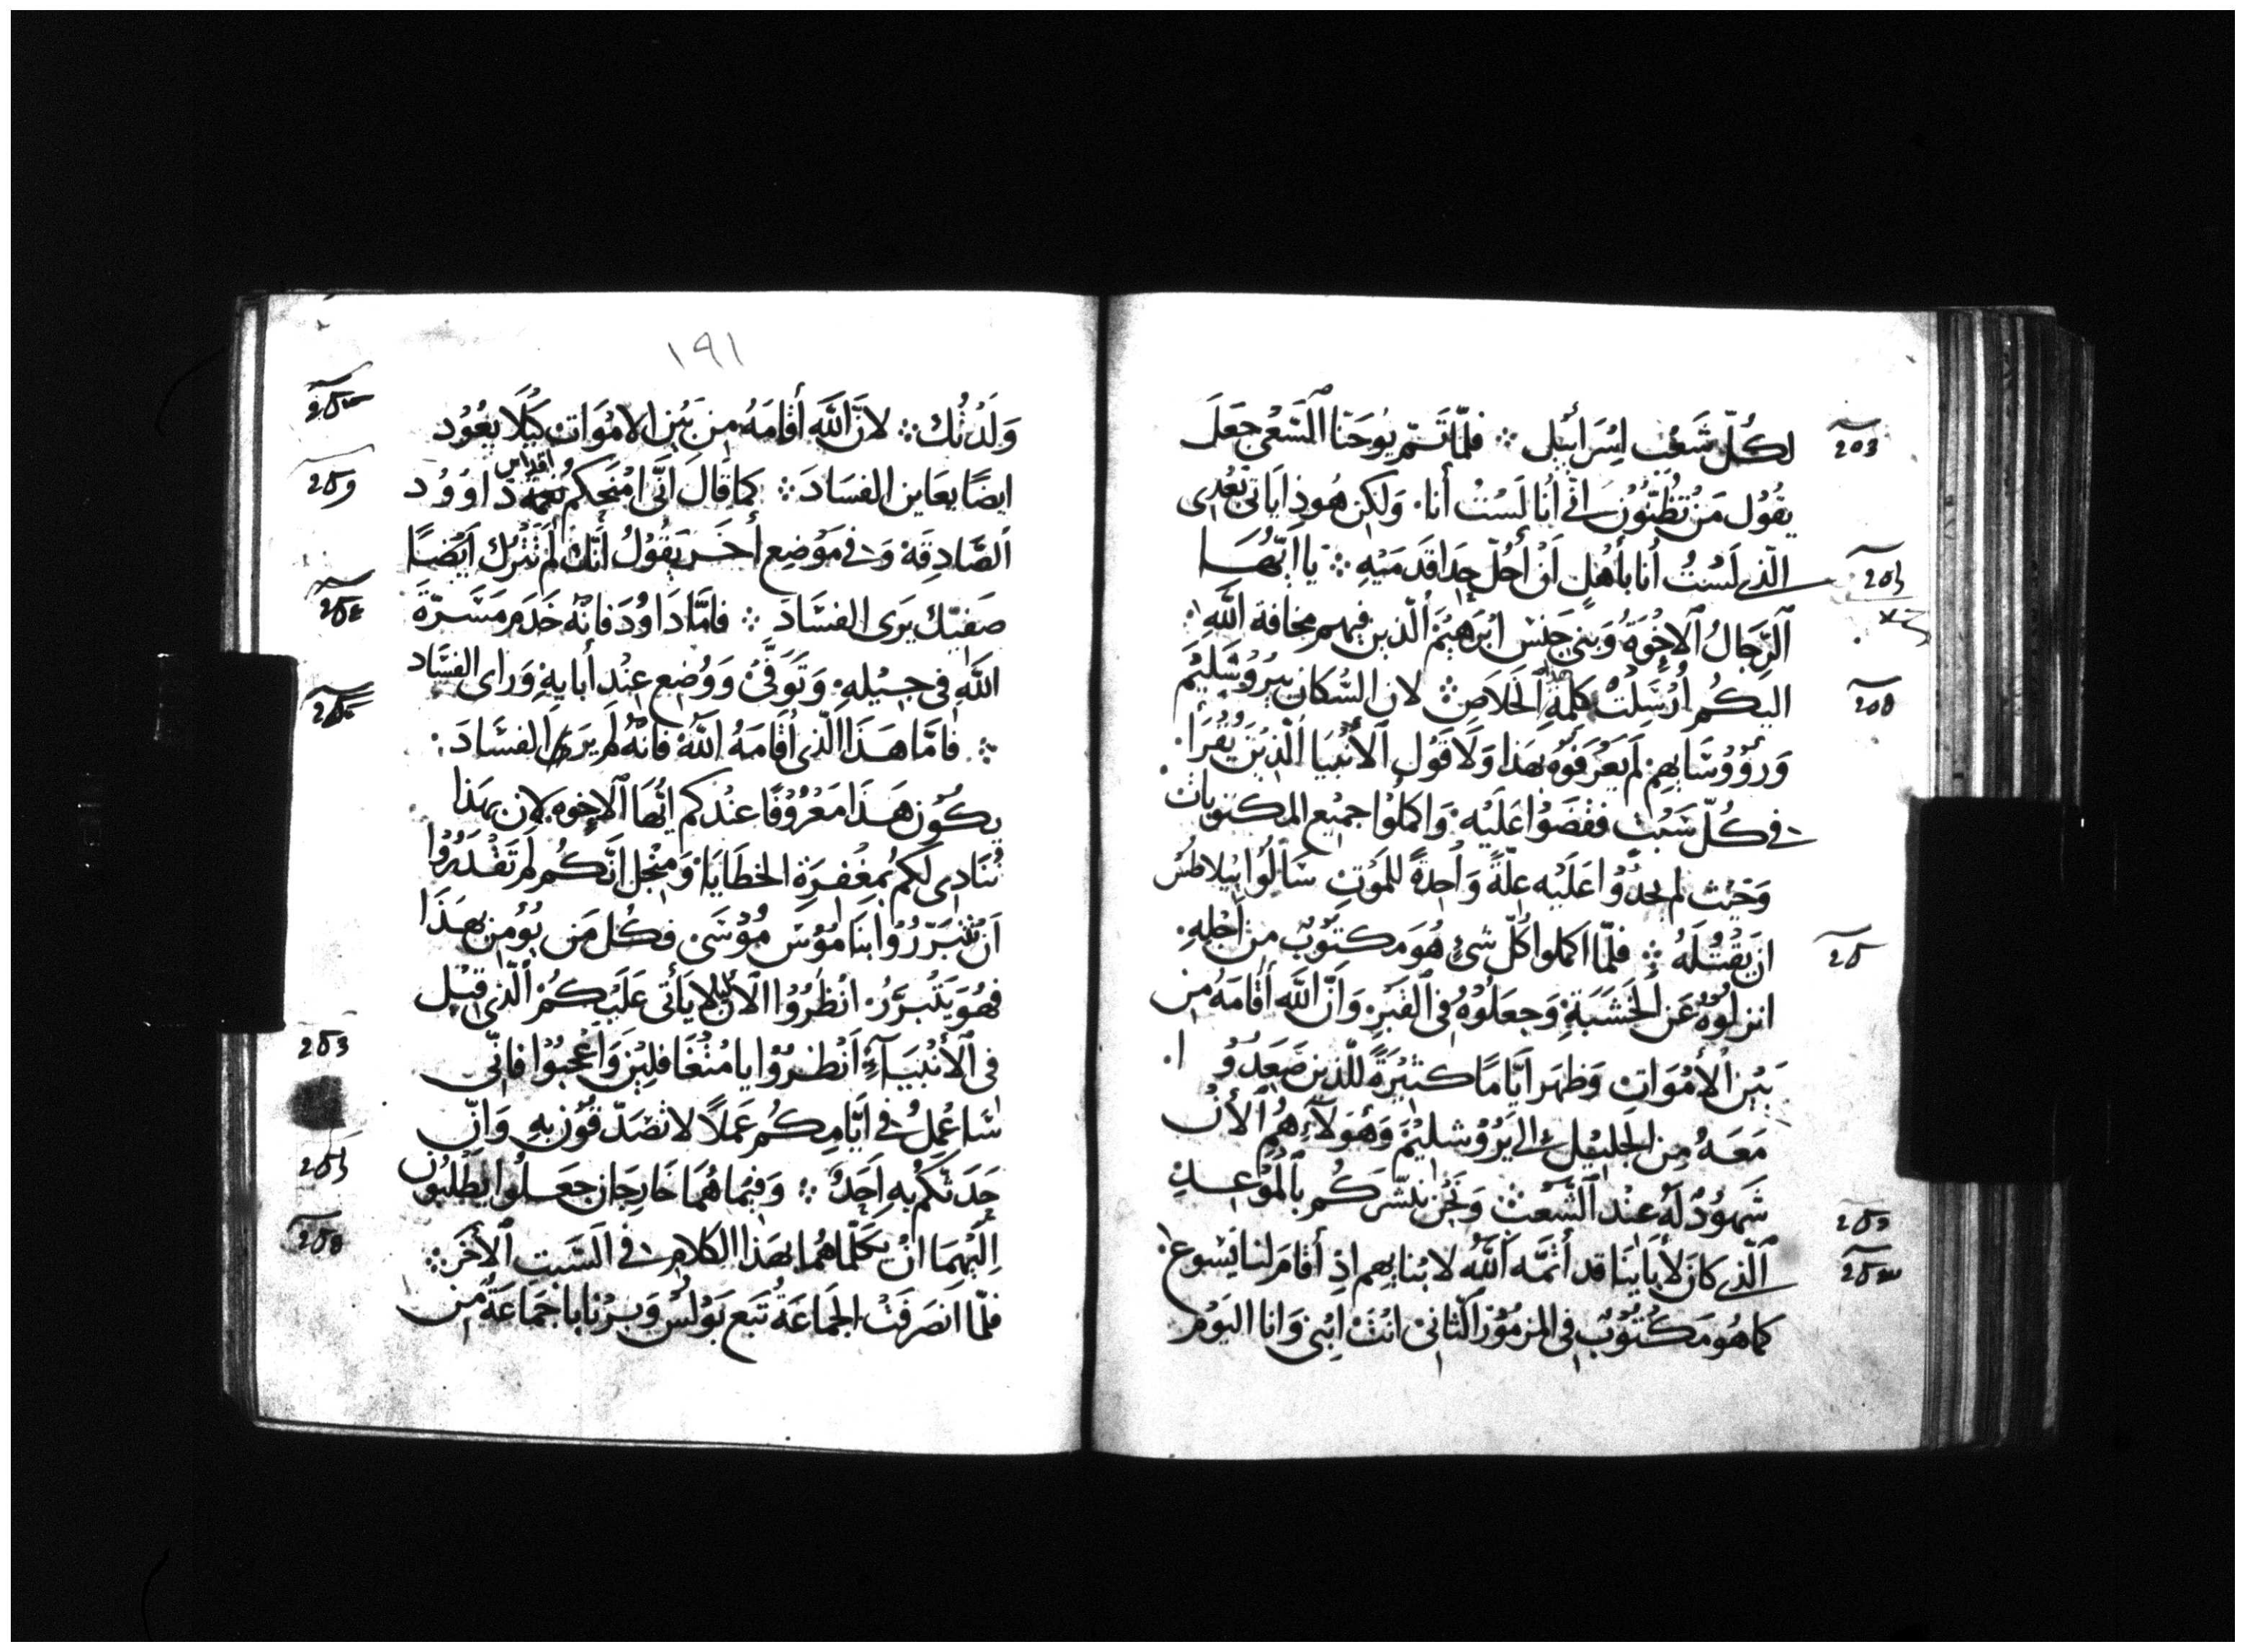 لكُلّ شَعْب اِسْرَائيل ⁘ فلمّا تَمّم يُوحَنّا اَلسّعْى جعَلَ
يقُوْل مَنْ تُظُنّوْن انى أنا لَسْتُ أنا۰ وَلكن هُوذا ياتى بَعْدى
الّذي لَسْتُ أنا بأهْلٍ أن أحُلّ حِذا قدَميْهِ ⁘ يا ايّهَا
اَلرّجالُ اَلاخْوَةُ وَبَني جنس ابْرَهيْمْ الّذين فيهم مخافة اللّهِ
اليكُم أُرْسِلتْ كلمة هذا الخَلاصِ ⁘ لان السّكان بيرُوْشَليْم
وَرُؤوْسَايهِمْ لَم يَعْرَفوْه بهَذا وَلَا قَوْل اَلأنْبيا الّذِيْنَ يُقْرَأ
في كُلّ سَبْت ففصَوْا عَلَيْه۰ وَاكملُوْا جميْع المكتوبات
وَحَيْث لم يجدُوْا عَلَيْه علّةً وَاحِدةً للمَوْتِ سَألُوْا بيلاطُسْ
ان يَقْتُلَهُ ⁘ فلمّا اكملوا كُلّ شئٍ هُوَ مكتوُبٌ من أجْلِهِ۰
انزلوُهُ عَن الخَشبَةِ وَجعَلُوْهُ في القَبْرِ وَأنّ اللّه أقامَهُ من
بَيْن الأمْوَات وَظهَر ايّامًا كثيْرَةً للّذين صَعِدُوْا
مَعَهُ من الجَليْل الي يَرُوْشليْمَ وَهَوُلآءِ هُمْ الأن
شَهُودٌ لَهُ عنْد اَلشّعْب وَنَحْن نبشّركُم بالْمَوْعدِ
اَلّذي كانَ لأبَاينَا قد أتمَّهُ اللّهُ لابْنايهم اذِ أقامَ لنا يَسُوع
كما هُو مَكتُوْبٌ في المزمُوْر الثّانى انتَ ابْني وَانا اليَوْمَ
١٩١
وَلَدْتُك ⁘ لانّ اللّه أقامَهُ من بَيْن الامْوَات كيْلَا يعُوْد
ايضًا يعَاين الفسَادَ ⁘ كما قالَ انّى امْنحكم نعمة اقداس دَاوُوْد
اَلصّادِقة وَفي مَوْضِع أخَر يَقوْلُ أنّك لَم تَتْرُك ايْضًا
صَفيّك يَرَى الفسَّادَ ⁘ فامَّا دَاوُدَ فانّه خَدَم مَسَرّةَ
اللّهِ في جيْلهِ۰ وَتَوَفّى وَوُضِع عنْد أبايهِ وَرَاى الفسَّاد
⁘ فامّا هَذا الّذى أقَامَهُ اللّهُ فانّهُ لم يرَ الفسَّادَ۰
يكُوْن هَذا مَعْرُوْفًا عنْدكم ايّها اَلاخوه لان بهَذا
نُنَادِى لكم بمغْفرَة الخطَايَا وَمنْ اجل انّكُم لَم تَقْدَرُوْا
اَن تتبَرّرُوْا بنَامُوْسَ مُوْسَى فكُل مَن يُوْمن بهَذَا
فهُوَ يَتبرَّرُ۰ انْظُرُوْا اَلأن ليلا يَأتى عَلَيْكُمْ الّذى قيْل
في اَلأنْبيَآءِ اَنْظرُوْا يا مُتْغَافليْنَ وَاَعْجبُوْا فانّى
سَّاعْملُ في ايّامكُم عَملاً لا تصَدّقوْن بهِ وَانْ
حَدَثكُم بهِ اَحَدٌ ⁘ وَفيْما هُمَا خَارجَان جعَلوُا يطْلبُون
اِليْهمَا انْ يكَلّماهُما بهَذا الكلام في السّبتِ اَلأخَر ⁘
فلمّا انصَرَفتْ الجَماعَةُ تبَع بَوْلسُ وَبرْنابا جَمَاعَةٌ من